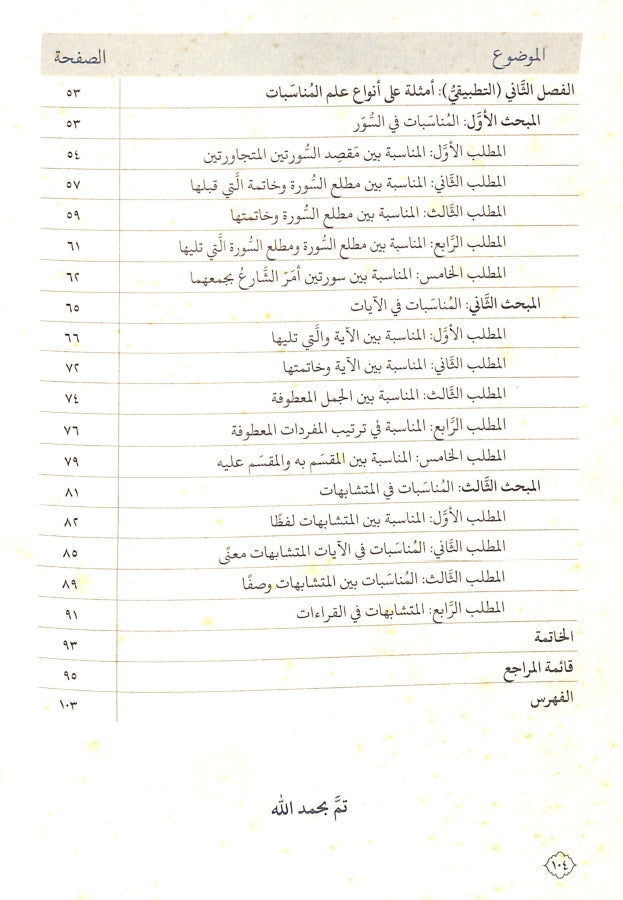 الموضوع الصفحة
الفصل الثَّاني (التطبيقيُّ): أمثلة على أنواع علم المُناسَبات ٥٣
المبحث الأوَّل: المُناسَبات في السُّوَر ٥٣
المطلب الأوَّل: المناسبة بين مَقصِد السُّورتين المتجاورتين ٥٤
المطلب الثَّاني: المناسبة بين مطلع السُّورة وخاتمة الَّتي قبلها ٥٧
المطلب الثَّالث: المناسبة بين مطلع السُّورة وخاتمتها ٥٩
المطلب الرَّابع: المناسبة بين مطلع السُّورة ومطلع السُّورة الَّتي تليها ٦١
المطلب الخامس: المناسبة بين سورتين أمَرَ الشَّارعُ بجمعهما ٦٢
المبحث الثَّاني: المُناسَبات في الآيات ٦٥
المطلب الأوَّل: المناسبة بين الآية والَّتي تليها ٦٦
المطلب الثَّاني: المناسبة بين الآية وخاتمتها ٧٢
المطلب الثَّالث: المناسبة بين الجمل المعطوفة ٧٤
المطلب الرَّابع: المناسبة في ترتيب المفردات المعطوفة ٧٦
المطلب الخامس: المناسبة بين المقسَم به والمقسَم عليه ٧٩
المبحث الثَّالث: المُناسَبات في المتشابهات ٨١
المطلب الأوَّل: المناسبة بين المتشابهات لفظًا ٨٢
المطلب الثَّاني: المُناسَبات في الآيات المتشابهات معنًى ٨٥
المطلب الثَّالث: المُناسَبات بين المتشابهات وصفًا ٨٩
المطلب الرَّابع: المتشابهات في القراءات ٩١
الخاتمة ٩٣
قائمة المراجع ٩٥
الفهرس ١٠٣
تمَّ بحمد الله
١٠٤